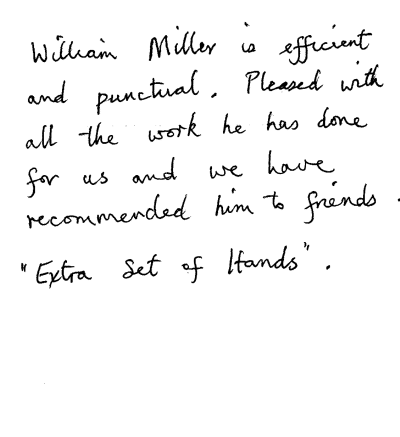 William Miller is efficient
and punctual. Pleased with
all the work he has done
for us and we have
recommended him to friends.
"Extra Set of Hands".